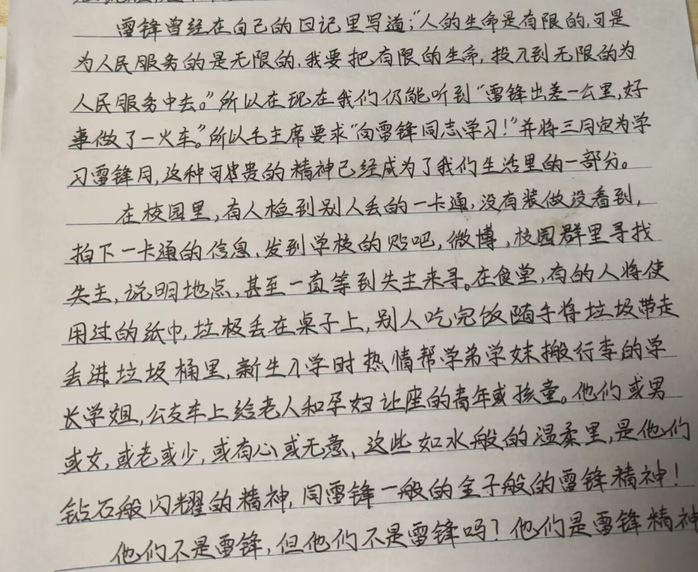 雷锋曾经在自己的日记里写道；“人的生命是有限的，可是
为人民服务的是无限的，我要把有限的生命，投入到无限的为
人民服务中去。”所以在现在我们仍能听到“雷锋出差一公里，好
事做了一火车。”所以毛主席要求“向雷锋同志学习！”并将三月定为学
习雷锋月，这种可贵的精神已经成为了我们生活里的一部分。
在校园里，有人检到别人丢的一卡通，没有装做没看到，
拍下一卡通的信息，发到学校的贴吧，微博，校园群里寻找
失主，说明地点，甚至一直等到失主来寻。在食堂，有的人将使
用过的纸巾，垃极丢在桌子上，别人吃完饭随手将垃圾带走
丢进垃圾桶里，新生入学时热情帮学弟学妹搬行李的学
长学姐，公交车上给老人和孕妇让座的青年或孩童。他们或男
或女，或老或少，或有心或无意，这些如水般的温柔里，是他们
钻石般闪耀的精神，同雷锋一般的金子般的雷锋精神！
他们不是雷锋，但他们不是雷锋吗？他们是雷锋精神